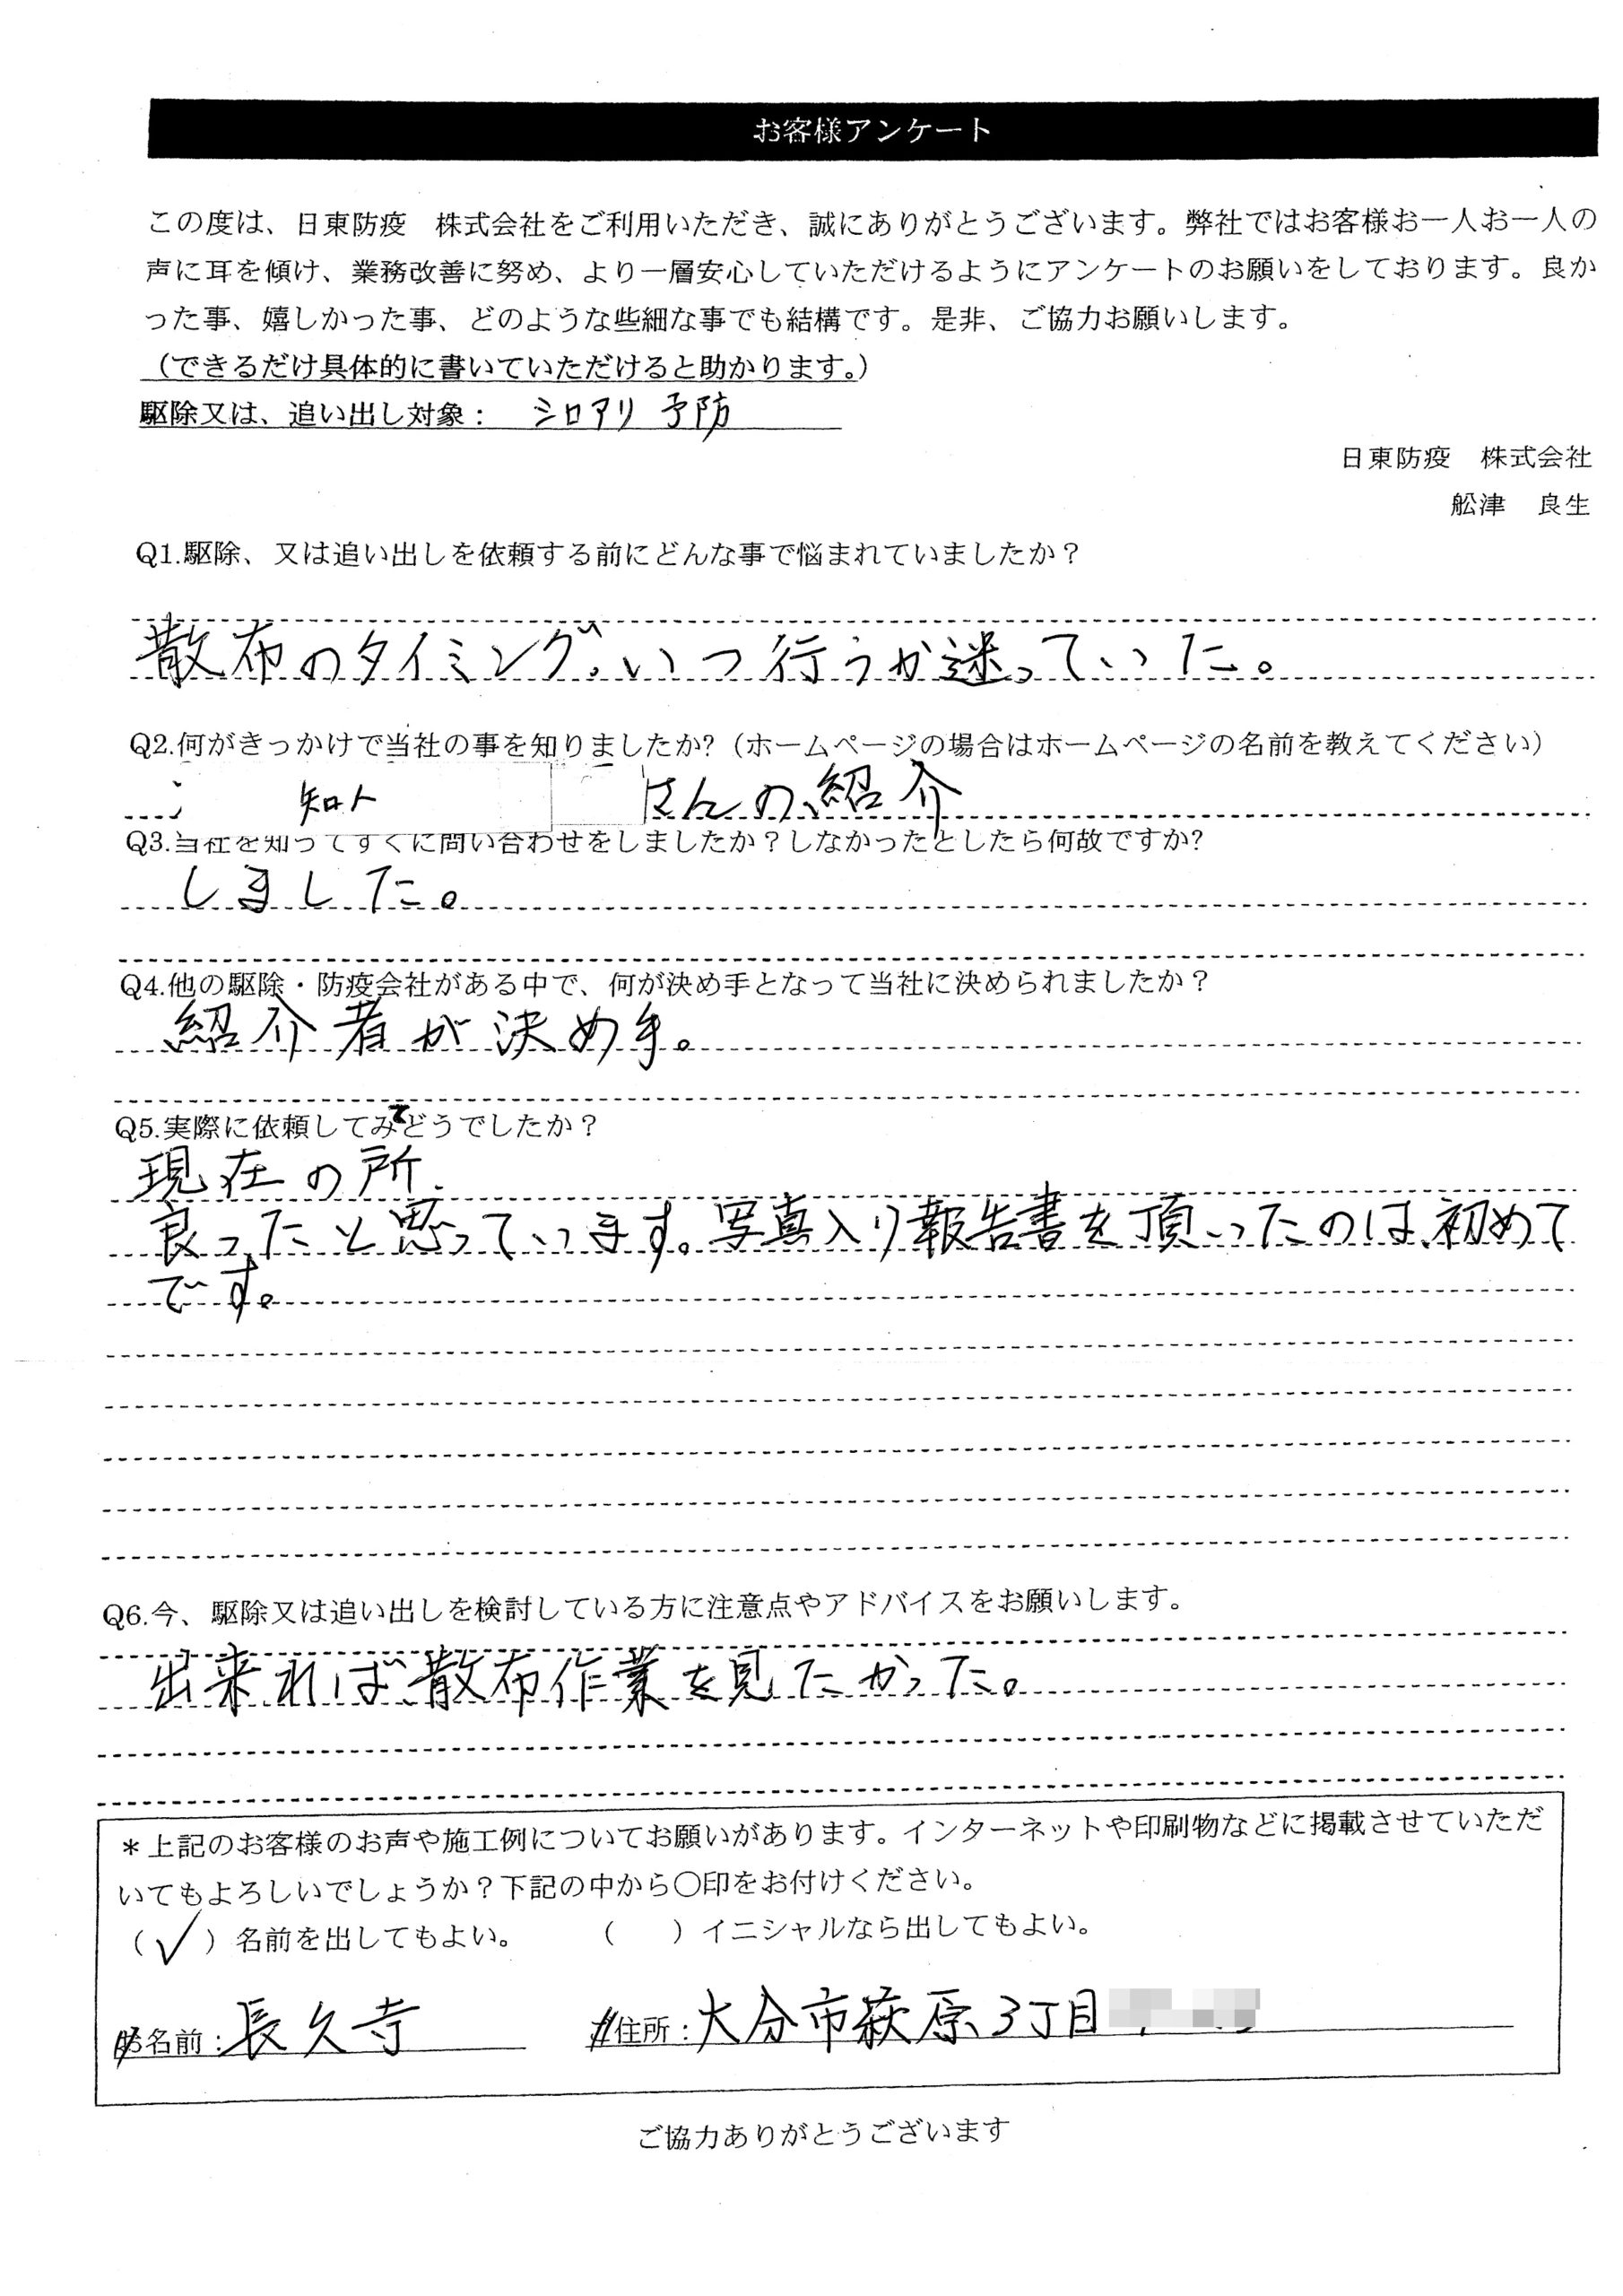 お客様アンケート
この度は、日東防疫　株式会社をご利用いただき、誠にありがとうございます。弊社ではお客様お一人お一人の
声に耳を傾け、業務改善に努め、より一層安心していただけるようにアンケートのお願いをしております。良か
った事、嬉しかった事、どのような些細な事でも結構です。是非、ご協力お願いします。
（できるだけ具体的に書いていただけると助かります。）
駆除又は、追い出し対象： シロアリ 予防
日東防疫　株式会社
舩津　良生
Q1.駆除、又は追い出しを依頼する前にどんな事で悩まれていましたか？
散布のタイミング、いつ行うか迷っていった。
Q2.何がきっかけで当社の事を知りましたか?（ホームページの場合はホームページの名前を教えてください）
知人 さんの紹介
Q3.当社を知ってすぐに問い合わせをしましたか？しなかったとしたら何故ですか?
しました。
Q4.他の駆除・防疫会社がある中で、何が決め手となって当社に決められましたか？
紹介者が決め手。
Q5.実際に依頼してみてどうでしたか？
現在の所、
良ったと思っています。写真入り報告書を頂いったのは、初めて
です。
Q6.今、駆除又は追い出しを検討している方に注意点やアドバイスをお願いします。
出来れば散布作業を見たかった。
＊上記のお客様のお声や施工例についてお願いがあります。インターネットや印刷物などに掲載させていただ
いてもよろしいでしょうか？下記の中から〇印をお付けください。
（✓）名前を出してもよい。　　（　）イニシャルなら出してもよい。
お名前：長久寺　ご住所：大分市萩原3丁目
ご協力ありがとうございます